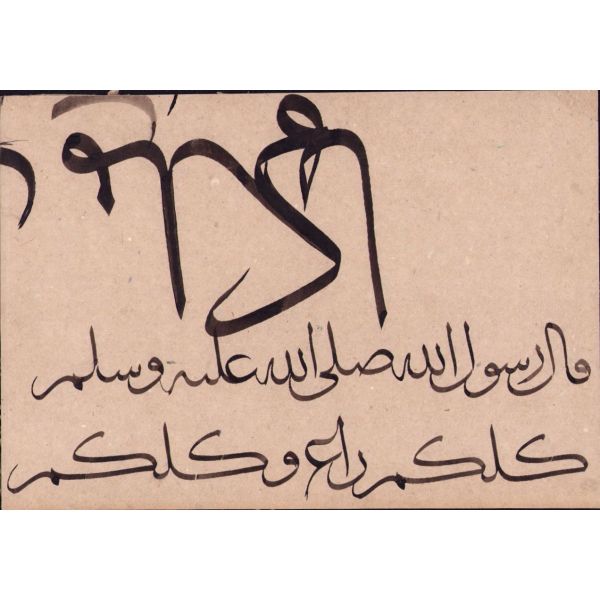 قال رسول الله صلى الله عليه وسلم
كلكم راع وكلكم